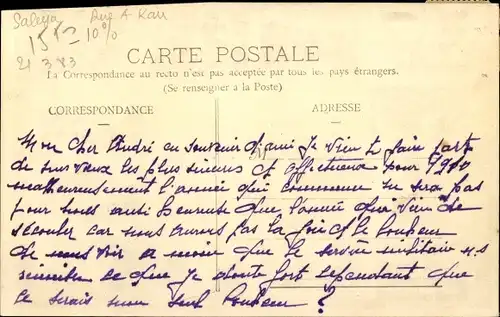 Salezza Rue A Karr
15 10%
21 3 83
CARTE POSTALE
La Correspondance au recto n'est pas acceptée par tous les pays étrangers.
(Se renseigner à la Poste)
CORRESPONDANCE ADRESSE
Mon Cher André en souvenir d'ami Je vien te faire part
de mes vœux les plus sincères et affectueux pour 1900
malheureusement l'année qui commence ne sera pas
pour nous aussi heureuse que l'année qui vien de
s'écouler car nous aurons pas la joie et le bonheur
de nous voir a moin que le service militaire
ce que je doute fort cependant que
ce serais mon seul bonheur ?